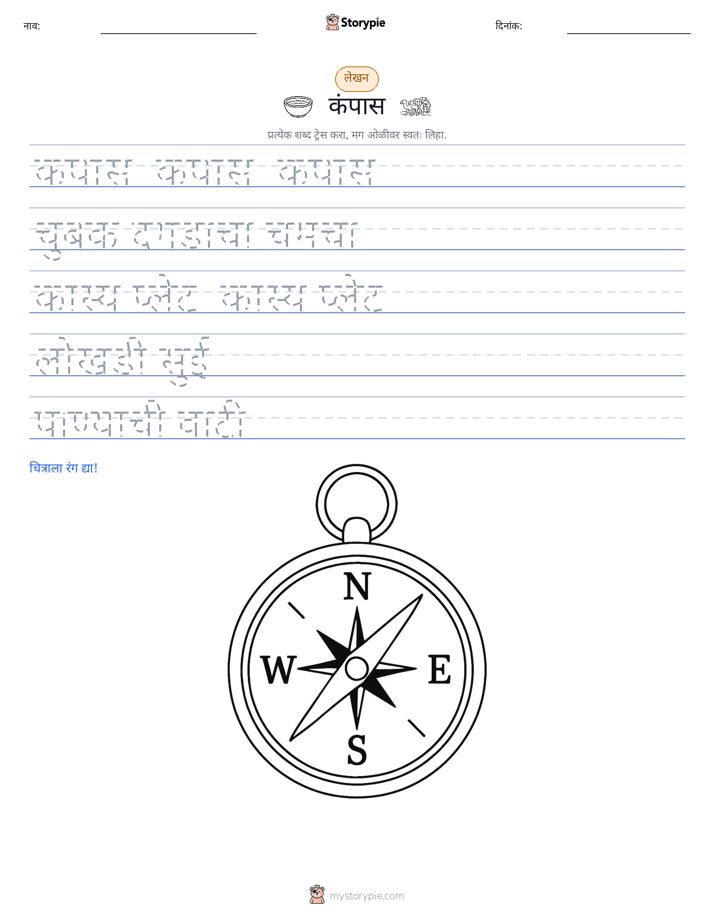 नाव:
Storypie
दिनांक:
लेखन
कंपास
प्रत्येक शब्द ट्रेस करा, मग ओळीवर स्वतः लिहा.
कपास कपास कपास
चुबक दगडाचा चमचा
कास्य प्लेट कास्य प्लेट
लोखडी सुई
पाण्याची वाटी
चित्राला रंग द्या!
N
W E
S
mystorypie.com